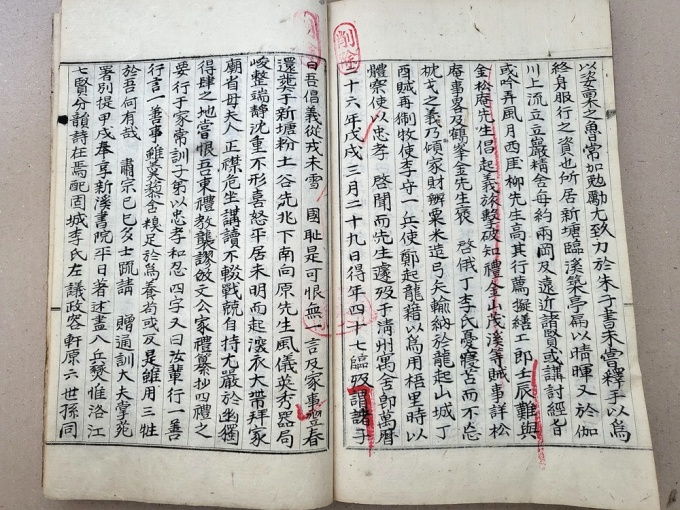 以姿稟之魯常加勉勵尤致力於朱子書未嘗釋手以爲
終身服行之資也所居新塘臨溪築亭扁以晴暉又於伽
川上流立立巖精舍每約兩岡及遠近諸賢或講討經旨
或吟弄風月西厓柳先生高其行薦擬繕工郎壬辰難與
金松庵先生倡起義旅擊破知禮金山茂溪等賊事詳松
庵事畧及鶴峯金先生褒 啓俄丁李氏憂寢苫而不忘
枕戈之義乃傾家財辦粟米造弓矢輸納於龍起山城丁
酉賊再
制牧使李守一兵使鄭起龍藉以爲用梧里時以
體察使以忠孝 啓聞而先生遽歿于清州寓舍卽萬曆
二十六年戊戌三月二十九日得年四十七臨歿謂諸子
曰吾倡義從戎未雪 國恥是可恨無一言及家事
春
還葬于新塘粉土谷先兆下南向原先生風儀英秀器局
峻整端靜沈重不形喜怒平居未明而起深衣大帶拜家
廟省母夫人正襟危坐講讀不輟戰兢自持尤嚴於幽獨
得肆之地嘗恨吾東禮教襲謬
文公家禮纂抄四禮之
要行于家常訓子弟以忠孝和忍四字又曰汝輩行一善
行言一善事雖
舍糗足於爲養苟或反是雖用三牲
於吾何有哉 肅宗己巳多士疏請 贈通訓大夫掌苑
署別提甲戌奉享新溪書院平日著述盡入兵燹惟洛江
七賢分韻詩在焉配固城李氏左議政容軒原六世孫同
削除